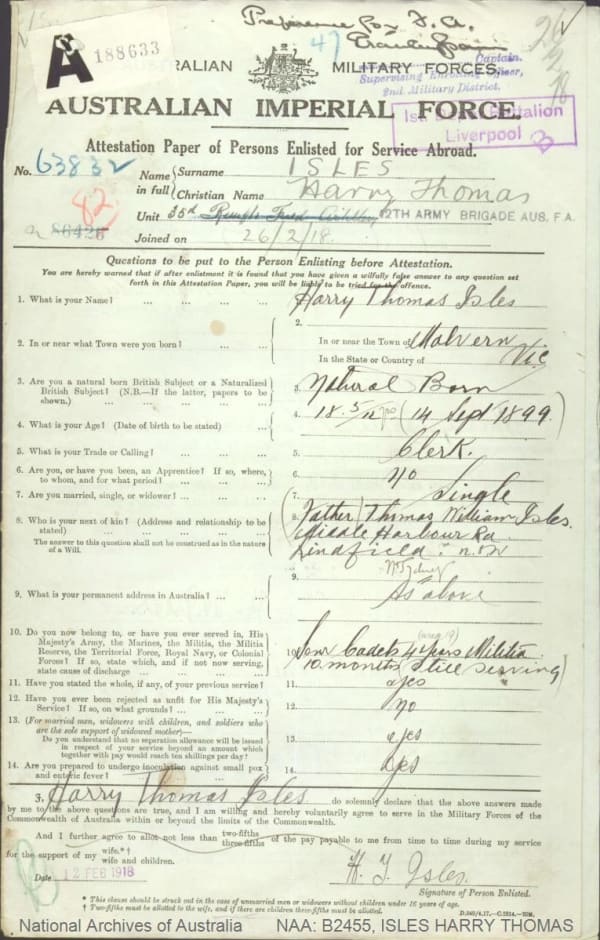 Preference for F.A.
47
188633
A
AUSTRALIAN MILITARY FORCES.
Captain.
Supervising Enrolling Officer,
2nd Military District.
AUSTRALIAN IMPERIAL FORCE.
1st Depot Battalion
Liverpool
Attestation Paper of Persons Enlisted for Service Abroad.
No. 63832
82
86426
Name in full
Surname ISLES
Christian Name Harry Thomas
Unit 35th 12TH ARMY BRIGADE AUS. F.A.
Joined on 26/2/18.
Questions to be put to the Person Enlisting before Attestation.
You are hereby warned that if after enlistment it is found that you have given a wilfully false answer to any question set
forth in this Attestation Paper, you will be liable to be tried for the offence.
1. What is your Name? ... ... ... ... Harry Thomas Isles
2. In or near what Town were you born? ... ... 2. In or near the Town of Malvern
In the State or Country of Vic
3. Are you a natural born British Subject or a Naturalized
British Subject? (N.B.—If the latter, papers to be
shown.) ... ... ... ... ... 3. Natural Born
4. What is your Age? (Date of birth to be stated) ... 4. 18 5/12 yrs (14 Sept 1899)
5. What is your Trade or Calling? ... ... ... 5. Clerk.
6. Are you, or have you been, an Apprentice? If so, where,
to whom, and for what period? ... ... ... 6. No
7. Are you married, single, or widower? ... ... 7. Single
8. Who is your next of kin? (Address and relationship to be
stated) ... ... ... ... ... 8. Father Thomas William Isles.
The answer to this question shall not be construed as in the nature
of a Will.
Middle Harbour Rd
Lindfield. N.S.W
N. Sydney
9. What is your permanent address in Australia? ... ... 9. As above
10. Do you now belong to, or have you ever served in, His
Majesty's Army, the Marines, the Militia, the Militia
Reserve, the Territorial Force, Royal Navy, or Colonial
Forces? If so, state which, and if not now serving,
state cause of discharge ... ... ... 10. Senr Cadets 4 years Militia
(area 19)
10 months (Still serving)
11. Have you stated the whole, if any, of your previous service? 11. yes
12. Have you ever been rejected as unfit for His Majesty's
Service? If so, on what grounds? ... ... ... 12. No
13. (For married men, widowers with children, and soldiers who
are the sole support of widowed mother)—
Do you understand that no separation allowance will be issued
in respect of your service beyond an amount which
together with pay would reach ten shillings per day? 13. yes
14. Are you prepared to undergo inoculation against small pox
and enteric fever? ... ... ... ... 14. yes
I, Harry Thomas Isles do solemnly declare that the above answers made
by me to the above questions are true, and I am willing and hereby voluntarily agree to serve in the Military Forces of the
Commonwealth of Australia within or beyond the limits of the Commonwealth.
And I further agree to allot not less than two-fifths
three-fifths of the pay payable to me from time to time during my service
for the support of my wife.*†
wife and children.
Date 12 FEB 1918
H. T. Isles.
Signature of Person Enlisted.
* This clause should be struck out in the case of unmarried men or widowers without children under 16 years of age.
† Two-fifths must be allotted to the wife, and if there are children three-fifths must be allotted.
National Archives of Australia NAA: B2455, ISLES HARRY THOMAS